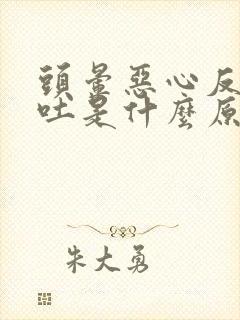 頭暈惡心反
吐是什麼原
朱大勇